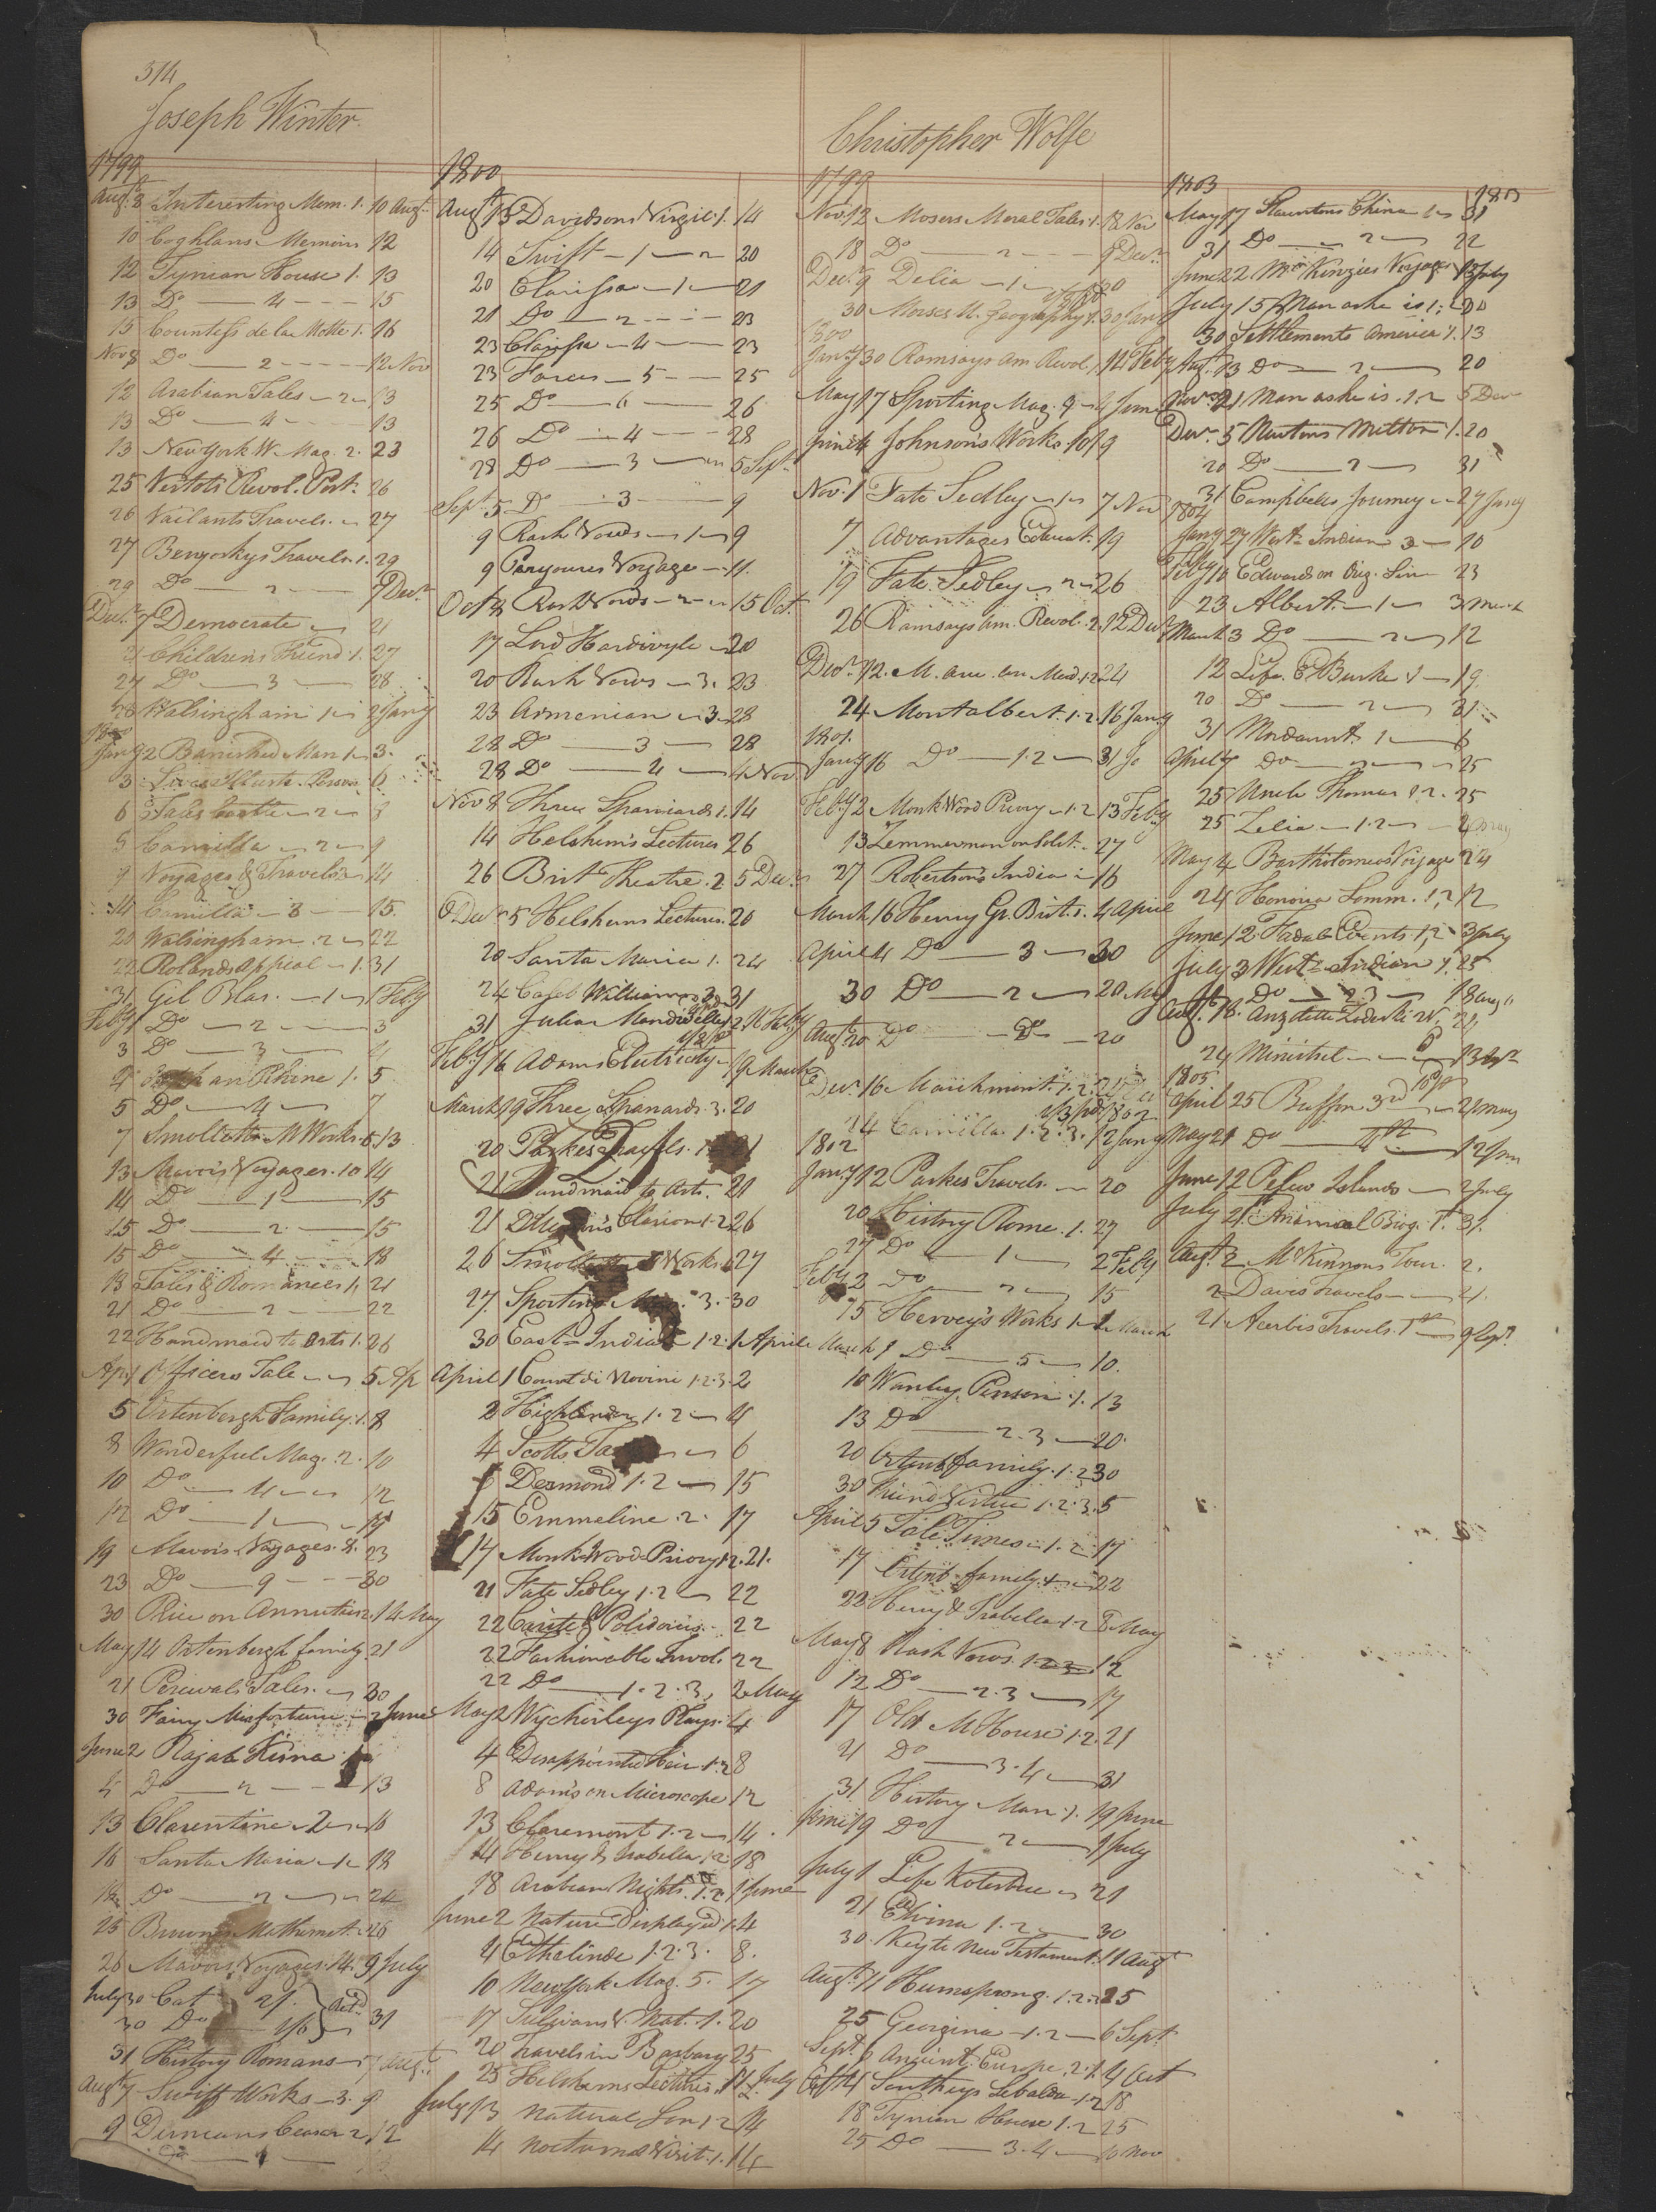 314
Joseph Winter
1799
Augt 8 Interesting Mem. 1. 10 Augt
10 Coghlans Memoirs 12
12 Tynian House 1. 13
13 Do 4 15
15 Countess de la Motte 1. 16
Nov 8 Do 2 12 Nov
12 Arabian Tales 2 13
13 Do 4 13
13 New York W. Mag. 2. 23
25 Vertots Revol. Port. 26
26 Vailants Travels 27
27 Benyoskys Travels 1. 29
29 Do 2 7 Decr
Decr 7 Democrate 21
21 Childrens Friend 1. 27
27 Do 3 28
28 Walsingham 1 2 Jany
1800
Jany 2 Banished Man 1 3.
3 Lives Illustr. Persons 6
6 Tales Castle 2 8
8 Camilla 2 9
9 Voyages & Travels 14
14 Camilla 3 15.
20 Walsingham 2 22
22 Rolands Appeal 1. 31
31 Gil Blas 1 1 Feby
Feby 1 Do 2 3
3 Do 3 4
4 an Rhine 1. 5
5 Do 4 7
7 Smolletts M Works 6. 13
13 Mavors Voyages 10 14
14 Do 1 15
15 Do 2. 15
15 Do 4 18
18 Tales & Romances 1, 21
21 Do 2 22
22 Handmaid to Arts 1. 26
Apr 1 Officers Tale 5 Ap
5 Ortenbergh Family 1. 8
8 Wonderful Mag. 2. 10
10 Do 4 12
12 Do 1 19
19 Mavors Voyages 8. 23
23 Do 9 30
30 Price on Annuities 14 May
May 14 Ortenbergh family 21
21 Percivals Tales 30
30 Fairy Misfortune 2 June
June 2 Rajah Kisna 1
4 Do 2 13
13 Clarentine 2 16
16 Santa Maria 1 18
18 Do 2 24
25 Mathemat. 26
26 Mavors Voyages 14. 9 July
July 30 Cat 2/. Retd
30 Do 1/6 31
31 History Romans 7 Augt
Augt 7 Swifts Works 3. 9
9 Duncans Ceasar 2 12
Do
1800
Augt 13 Davidsons Virgil 1. 14
14 Swift 1 20
20 Clarissa 1 21
21 Do 2 23
23 Clarissa 4 23
23 Farces 5 25
25 Do 6 26
26 Do 4 28
28 Do 3 5 Sept
Sept 5 Do 3 9
9 Rash Vows 1 9
9 Voyage 11.
Oct 8 Rash Vows 2 15 Oct.
17 Lord Hardivyle 20
20 Rash Vows 3. 23
23 Armenian 3 28
28 Do 3 28
28 Do 4 4 Nov
Nov 8 Three Spaniards 1. 14
14 Helsham's Lectures 26
26 Brit Theatre 2 5 Decr
Decr 5 Helshams Lectures 20
20 Santa Maria 1. 24
24 Caleb Williams 3. 31
31 Julia Mandeville 1 2. 16 Feby
Feby 16 Adams Electricity 19 March
March 19 Three Spanards 3. 20
20 Parkes Travels. 1 21
21 Handmaid to Arts. 21
21 Clarion 1.2 26
26 Smolletts Works 6 27
27 Sporting Mag. 3. 30
30 East Indian 1.2. 1 Aprile
April 1 Count di Novini 1.2.3. 2
2 Highlander 1.2 4
4 Scotts 6
6 Desmond 1.2 15
15 Emmeline 2. 17
17 Monk Wood Priory 1.2. 21.
21 Fate Sedley 1.2 22
22 Carite & Polidorus 22
22 Fashionable Invol. 22
22 Do 1.2.3, 2 May
May 2 Wycherleys Plays 4
4 Disappointed Heir 1.2 8
8 Adams on Microscope 12
13 Claremont 1.2 14
14 Henry & Isabella 1.2 18
18 Arabian Nights 1.2. 1 June
June 2 Nature Displayed 1. 4
4 Ethelinde 1.2.3. 8.
10 New York Mag. 5. 17
17 Sulivans V. Nat. 1. 20
20 Travels in Barbary 25
25 Helshams Lectures 11 July
July 13 Natural Son 1.2 14
14 Nocturnal Visit 1. 14
Christopher Wolfe
1799
Nov. 12 Mosers Moral Tales 1. 18 Nov
18 Do 2 9 Decr
Decr 9 Delia 1 30
30 Morses U. Geography 1. 30 Jany
1800
Jany 30 Ramsays Am Revol. 1. 14 Feby
May 17 Sporting Mag. 9 4 June
June 4 Johnsons Works 10 19
Nov. 1 Fate Sedley 1 7 Nov
7 Advantages Educat. 19
19 Fate Sedley 2 26
26 Ramsays Am. Revol. 2. 12 Decr
Decr 12. M. 24
24 Montalbert. 1.2. 16 Jany
1801.
Jany 16 Do 1.2 31 Ja
Feby 2 Monk Wood Priory 1.2 13 Feby
13 Zemmermon on Solit. 27
27 Robertsons India 16
March 16 Henry Gr. Brit. 1. 4 April
April 4 Do 3 30
30 Do 2 20 May
Augt 20 Do 20
Decr 16 Marchmont. 1.2
24 Camilla 1.2.3. 12 Jany
1802
Jany 12 Parkes Travels 20
20 History Rome 1. 27
27 Do 1 2 Feby
Feby 2 Do 2 15
15 Hervey's Works 1 1 March
March 1 Do 5 10.
10 Wanley Penson 1. 13
13 Do 2.3 20.
20 Ortenb. family 1.2 30
30 Friend Virtue 1.2.3. 5
April 5 Tale Times 1.2. 17
17 Ortenb. family 4 22
22 Henry & Isabella 1.2 8 May
May 8 Rash Vows 1.2.3 12
12 Do 2.3 17
17 Old M House 1.2. 21
21 Do 3.4 31
31 History Man 1. 19 June
June 19 Do 2 1 July
July 1 Life Kotzebue 21
21 Elvina 1.2 30
30 Keyte New Testament. 11 Augt
Augt 11 Hermsprong 1.2.3 25
25 Georgina 1.2 6 Sept
Sept 6 Ancient Europe 2.1. 4 Oct
Southeys 1.2 18
18 Tynian House 1.2 25
25 Do 3.4 10 Nov
1803
May 17 Stauntons China 1 31
31 Do 2 22
June 22. McKinzies Voyages 15 July
July 15 Man as he is 1.2 30
30 Settlements America 1. 13
Augt 13 Do 2 20
Novr 21 Man as he is. 1.2 5 Decr
Decr 5 Newtons Milton 1. 20
20 Do 2 31
31 Campbells Journey 27 Jany
1804
Jany 27 West Indian 3 10
Feby 10 Edwards on Orig. Sin 23
23 Albert 1 3 March
March 3 Do 2 12
12 Life E Burke 1 19.
20 Do 2 31
31 Mordaunt 1 6
April 7 Do 2 25
25 Uncle Thomas 1.2. 25
25 Zelia 1.2 4 May
May 4 Bartholomews Voyage 24
24 Honoria Somm. 1,2 12
June 12 Fadal Events 1,2 3 July
July 3 West Indian 1. 25
Do 2.3 18 Augt
Augt 18. 24
24 Minstrel 13 Sept
1805
April 25 Buffon 3rd 21 May
May 21 Do 4th 12 Jun
June 12 Pelew Islands 2 July
July 21 Animal Biog. 1st. 31.
Augt 2 McKinnons Tour. 2.
2 Davis Travels 21.
21 Acerbis Travels. 1st 9 Sept